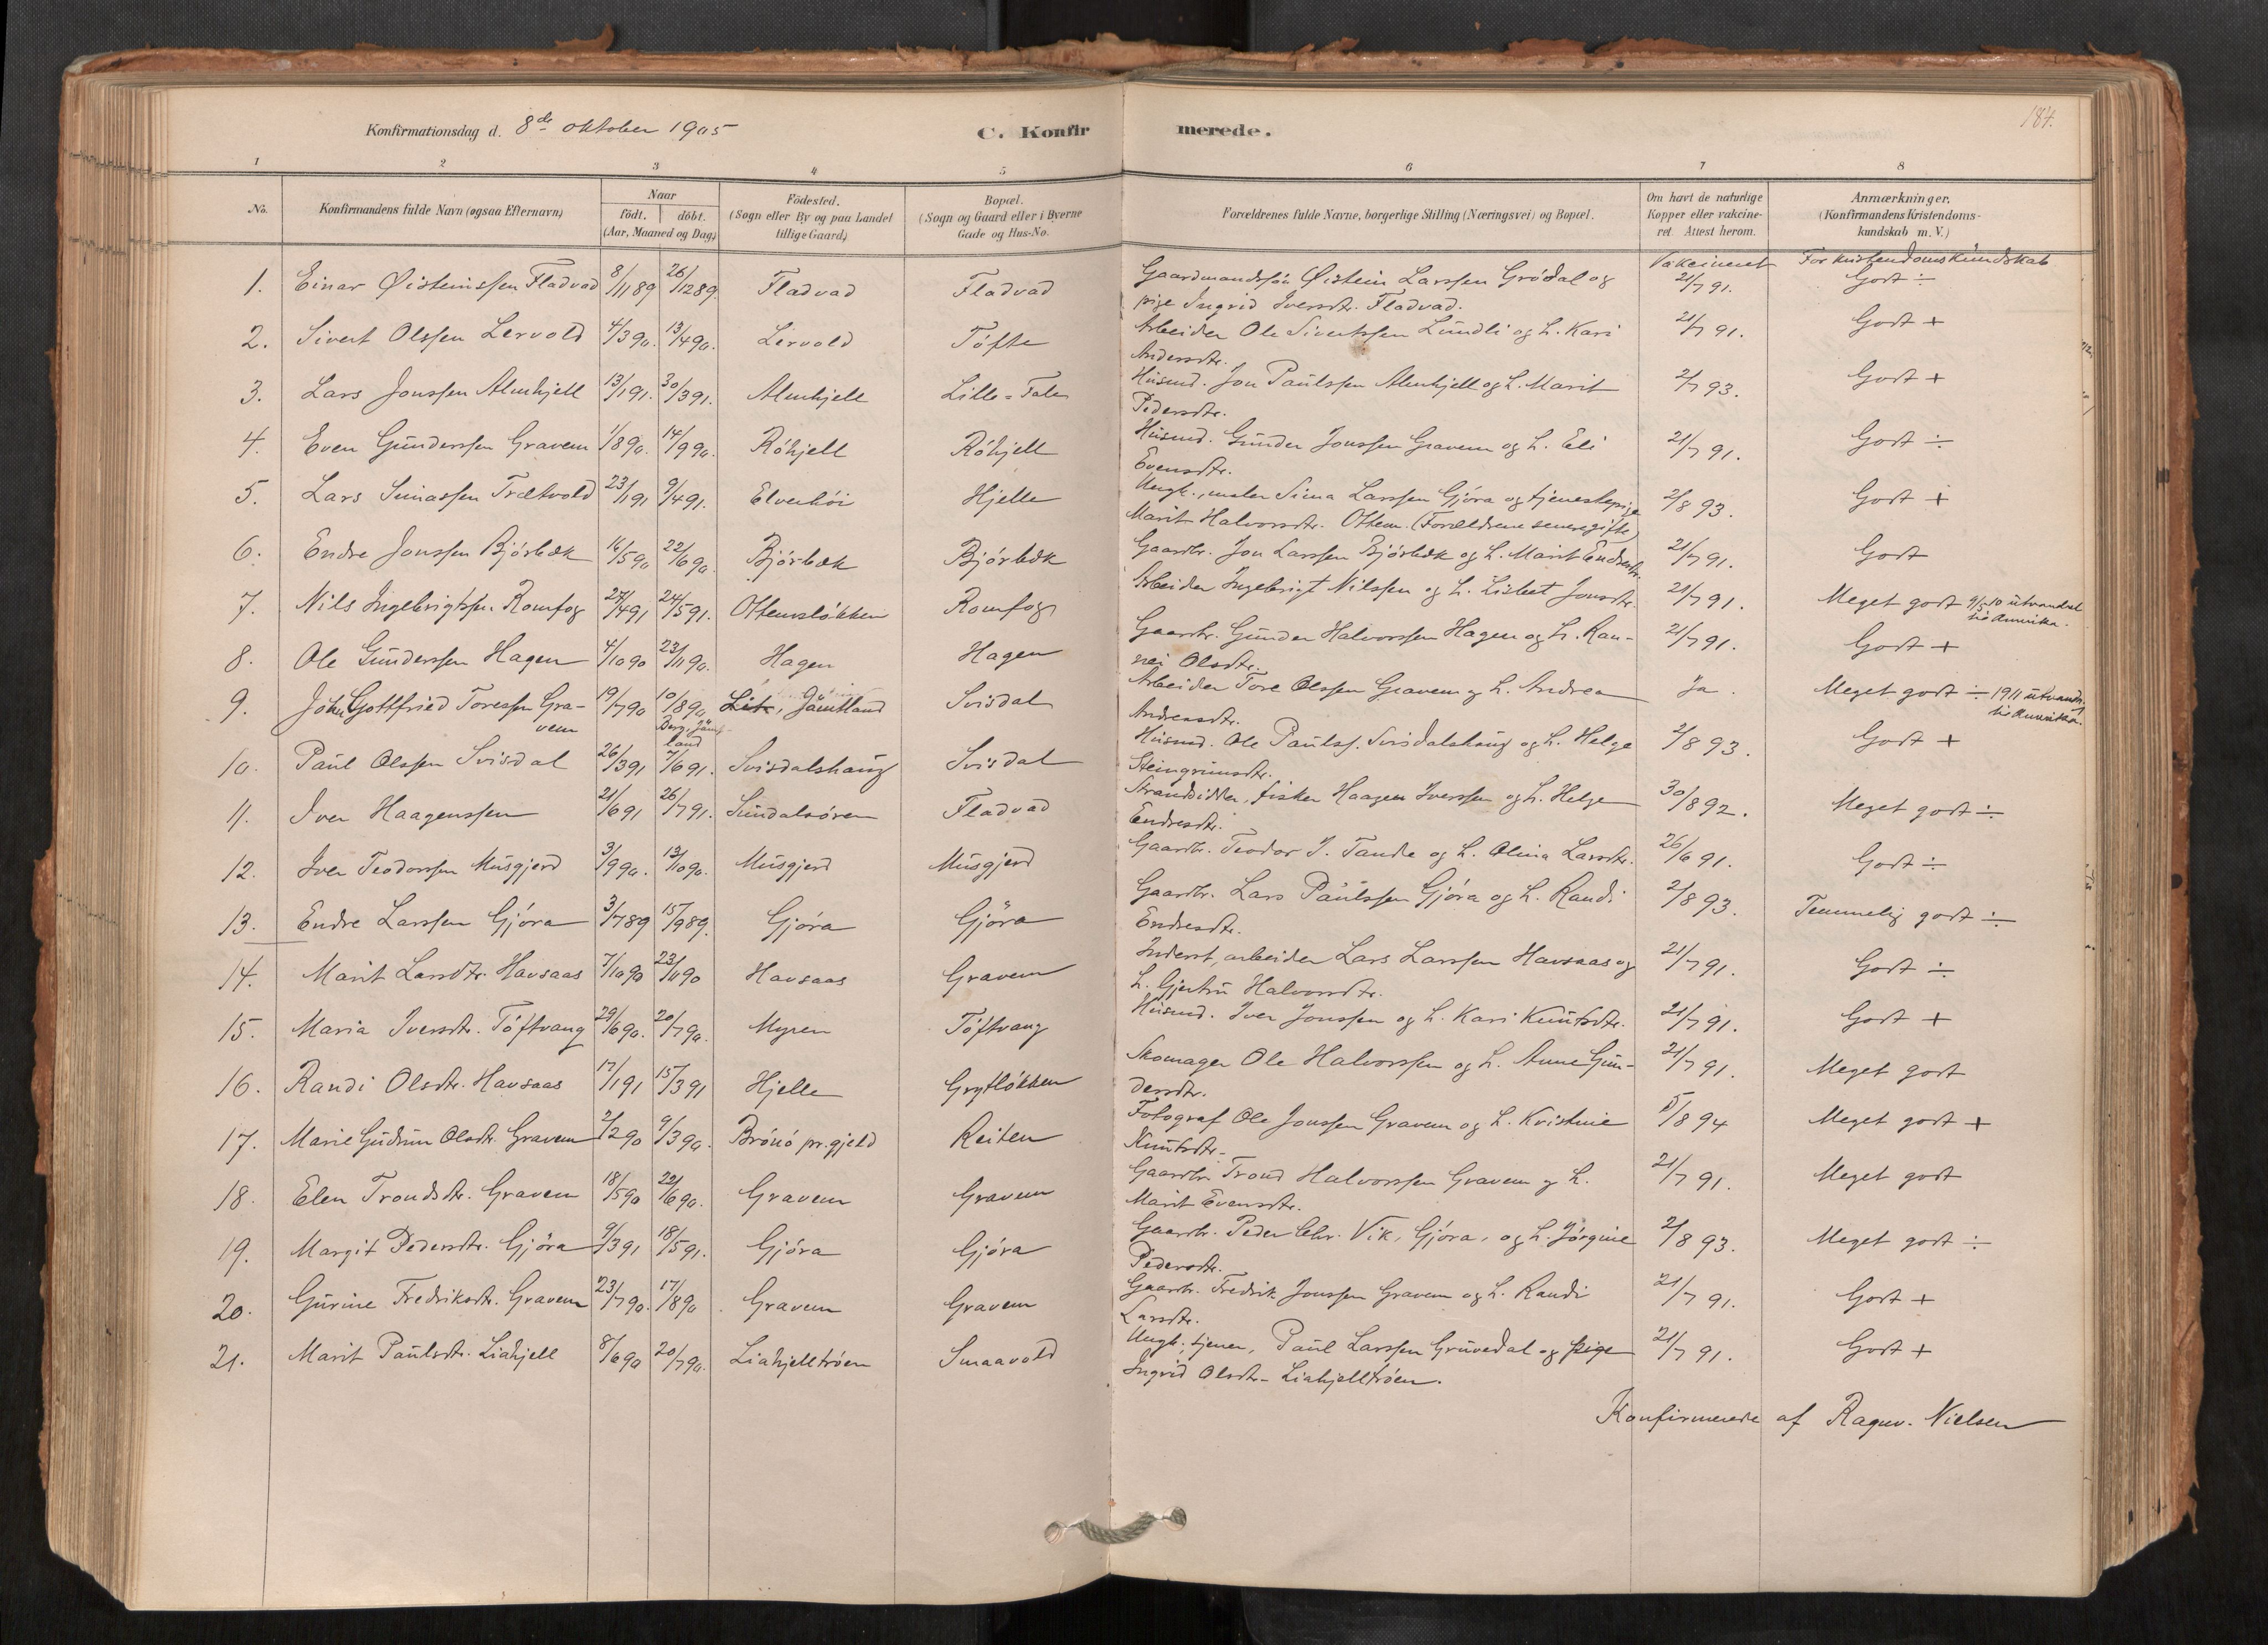 Konfirmationsdag d. 8de oktober 1905
C. Konfir merede.
184.
1 2 3 4 5 6 7 8
No.
Konfirmandens fulde Navn (ogsaa Efternavn)
Naar
födt. döbt.
(Aar, Maaned og Dag.)
Födested.
(Sogn eller By og paa Landet
tillige Gaard.)
Bopæl.
(Sogn og Gaard eller i Byerne
Gade og Hus-No.
Forældrenes fulde Navne, borgerlige Stilling (Næringsvei) og Bopæl.
Om havt de naturlige
Kopper eller vakcine-
ret. Attest herom.
Anmærkninger.
(Konfirmandens Kristendoms-
kundskab m. V.)
Vakcineret For kristendomskundskab
1. Einar Øisteinssen Fladvad 8/11 89 26/12 89. Fladvad Fladvad Gaardmandssøn Øistein Larssen Grödal og 21/7 91. Godt ÷
pige Ingrid Iversdtr. Fladvad.
2. Sivert Olssen Lervold 4/3 90. 13/4 90. Lervold Töfte Arbeider Ole Sivertssen Lundli og h. Kari 21/7 91. Godt +
Andersdtr.
3. Lars Jonssen Almhjell 13/1 91. 30/3 91. Almhjell Lille-Fale Husmd. Jon Paulssen Almhjell og h. Marit 2/7 93. Godt +
Pedersdtr.
4. Even Gunderssen Gravem 1/8 90. 14/9 90. Röhjell Röhjell Husmd. Gunder Jonssen Gravem og h. Eli 21/7 91. Godt ÷
Evensdtr.
5. Lars Simassen Trætvold 23/1 91 9/4 91. Elverhöi Hjelle Ungk., maler Sima Larssen Gjöra og tjenestepige 2/8 93. Godt +
Marit Halvorsdtr. Ottem. (Forældrene senere gifte)
6. Endre Jonssen Bjørbæk 16/5 90 22/6 90. Bjørbæk Bjørbæk Gaardbr. Jon Larssen Bjørbæk og h. Marit Endresdtr. 21/7 91. Godt
7. Nils Ingebrigtssen Romfog 27/4 91 24/5 91. Ottemsløkken Romfog Arbeider Ingebrigt Nilssen og h. Lisbet Jonsdtr. 21/7 91. Meget godt 9/5 10 utvandret
til Amerika.
8. Ole Gunderssen Hagen 4/10 90 23/11 90. Hagen Hagen Gaardbr. Gunder Halvorssen Hagen og h. Ran- 21/7 91. Godt +
nei Olsdtr.
9. John Gottfried Toressen Gra- 19/7 90 10/8 90 Lit, Jämtland Svisdal Arbeider Tore Olssen Gravem og h. Andrea Ja. Meget godt ÷ 1911 utvandr.
vem Berg, Jämt- Andreasdtr. til Amerika.
land
10. Paul Olssen Svisdal 26/3 91 7/6 91. Svisdalshaug Svisdal Husmd. Ole Paulss. Svisdalshaug og h. Helge 2/8 93. Godt +
Steingrimsdtr.
11. Iver Haagenssen 21/6 91 26/7 91. Sundalsören Fladvad Strandsidder, fisker Haagen Iverssen og h. Helge 30/8 92. Meget godt ÷
Endresdtr.
12. Iver Teodorssen Musgjerd 3/9 90. 13/10 90. Musgjerd Musgjerd Gaardbr. Teodor J. Tande og h. Olina Larsdtr. 26/6 91. Godt ÷
13. Endre Larssen Gjöra 3/7 89 15/9 89. Gjöra Gjöra Gaardbr. Lars Paulssen Gjöra og h. Randi 2/8 93. Temmelig godt ÷
Endresdtr.
14. Marit Larsdtr. Havsaas 7/10 90 23/11 90 Havsaas Gravem Inderst, arbeider Lars Larssen Havsaas og 21/7 91. Godt ÷
h. Gjertru Halvorsdtr.
15. Maria Iversdtr. Töftvang 29/6 90. 20/7 90. Myren Töftvang Husmd. Iver Jonssen og h. Kari Knutsdtr. 21/7 91. Godt +
16. Randi Olsdtr. Havsaas 17/1 91 15/3 91 Hjelle Grytlökken Skomager Ole Halvorssen og h. Anne Gun- 21/7 91. Meget godt
dersdtr.
17. Marie Gudrun Olsdtr. Gravem 2/2 90 9/3 90. Brönö pr.gjeld Reiten Fotograf Ole Jonssen Gravem og h. Kristine 5/8 94 Meget godt +
Knutsdtr.
18. Elen Trondsdtr. Gravem 18/5 90 22/6 90. Gravem Gravem Gaardbr. Trond Halvorssen Gravem og h. 21/7 91. Meget godt
Marit Evensdtr.
19. Margit Pedersdtr. Gjöra 9/3 91 18/5 91. Gjöra Gjöra Gaardbr. Peder Chr. Vik, Gjöra, og h. Jörgine 2/8 93. Meget godt ÷
Pedersdtr.
20. Gurine Fredriksdtr. Gravem 23/7 90. 17/8 90. Gravem Gravem Gaardbr. Fredrik Jonssen Gravem og h. Randi 21/7 91. Godt +
Larsdtr.
21. Marit Paulsdtr. Liahjell 8/6 90 20/7 90. Liahjelltröen Smaavold Ungk. tjener, Paul Larssen Gruvedal og pige 21/7 91. Godt +
Ingrid Olsdtr. Liahjelltröen.
Konfirmerede af Ragnv. Nielsen